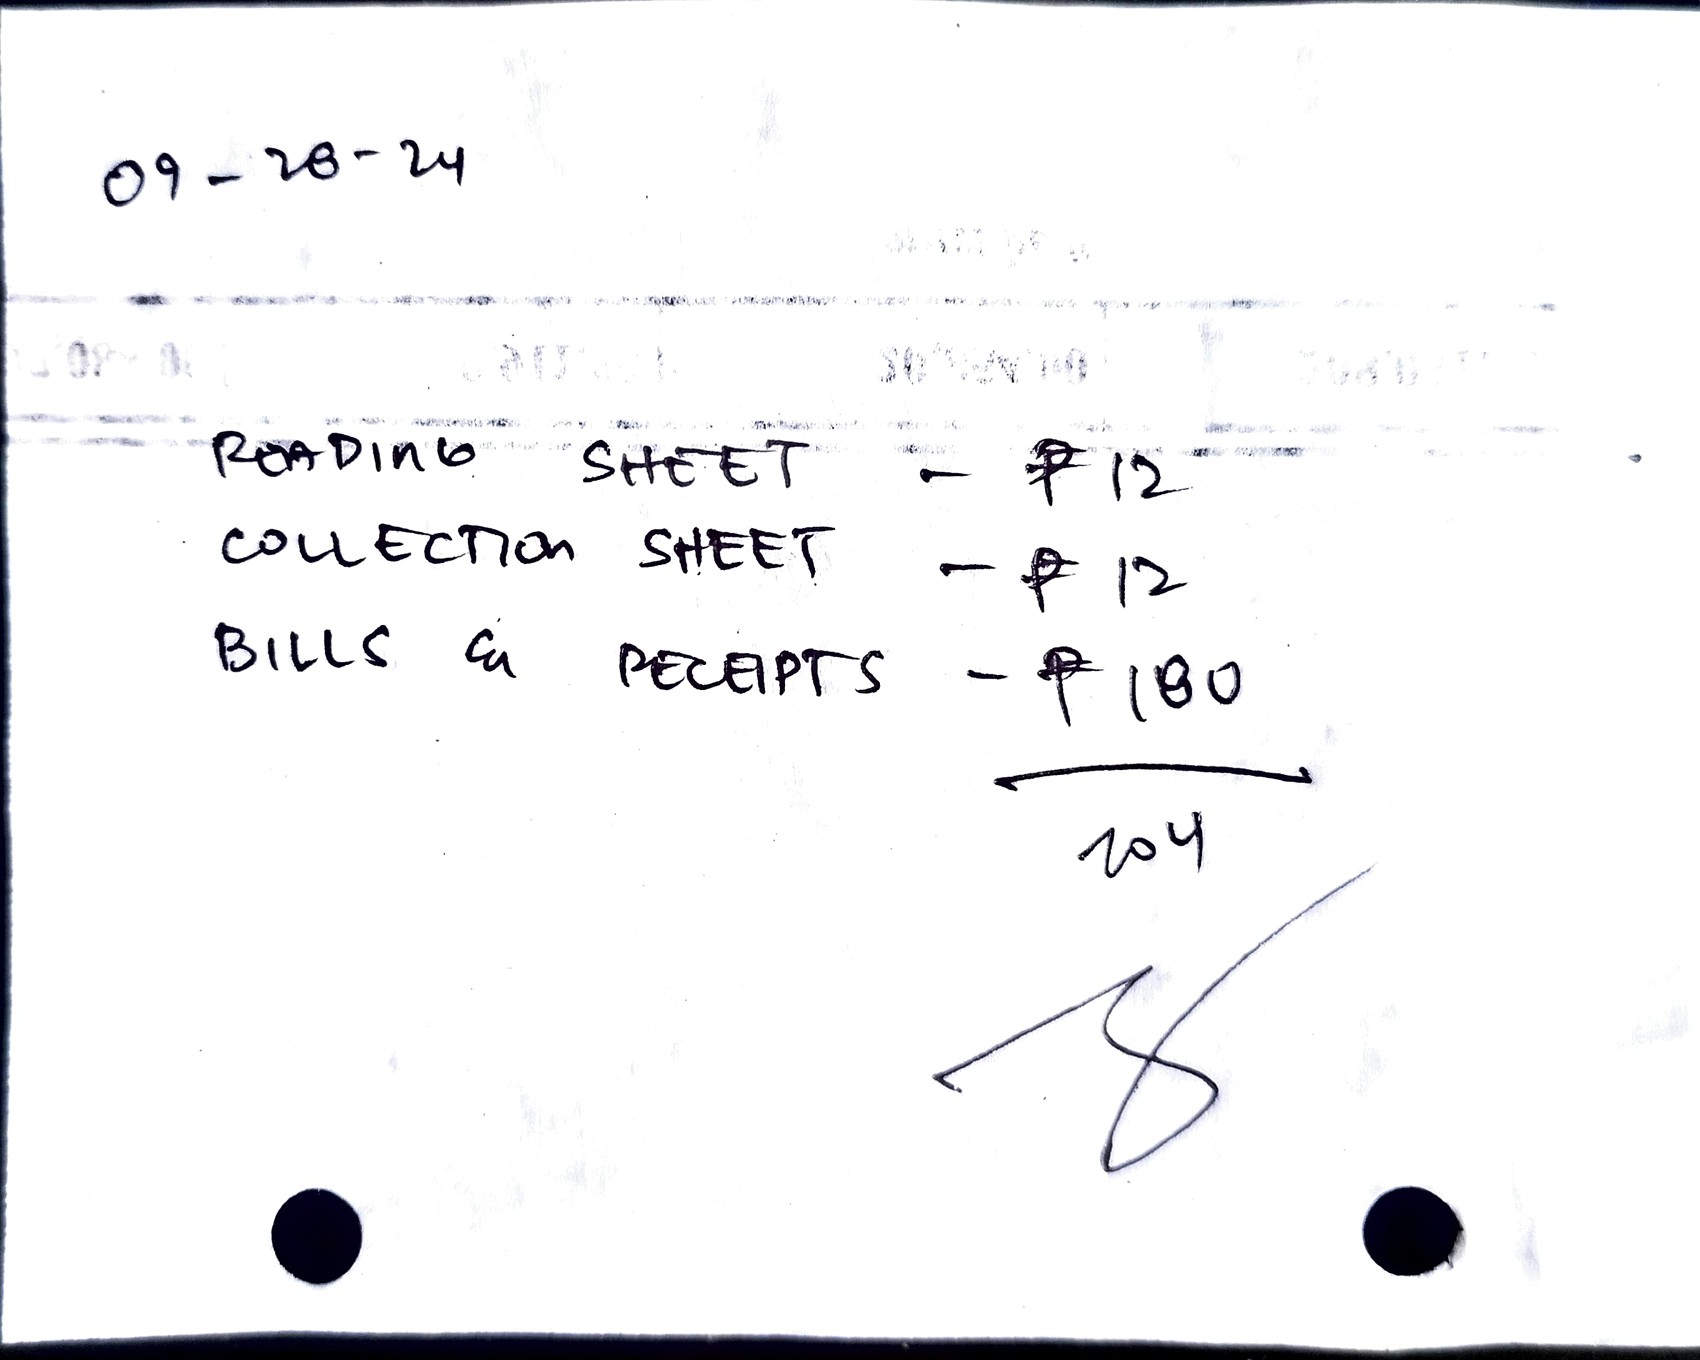 09-28-24
READING SHEET - ₱12
COLLECTION SHEET - ₱12
BILLS & RECEIPTS - ₱180
204